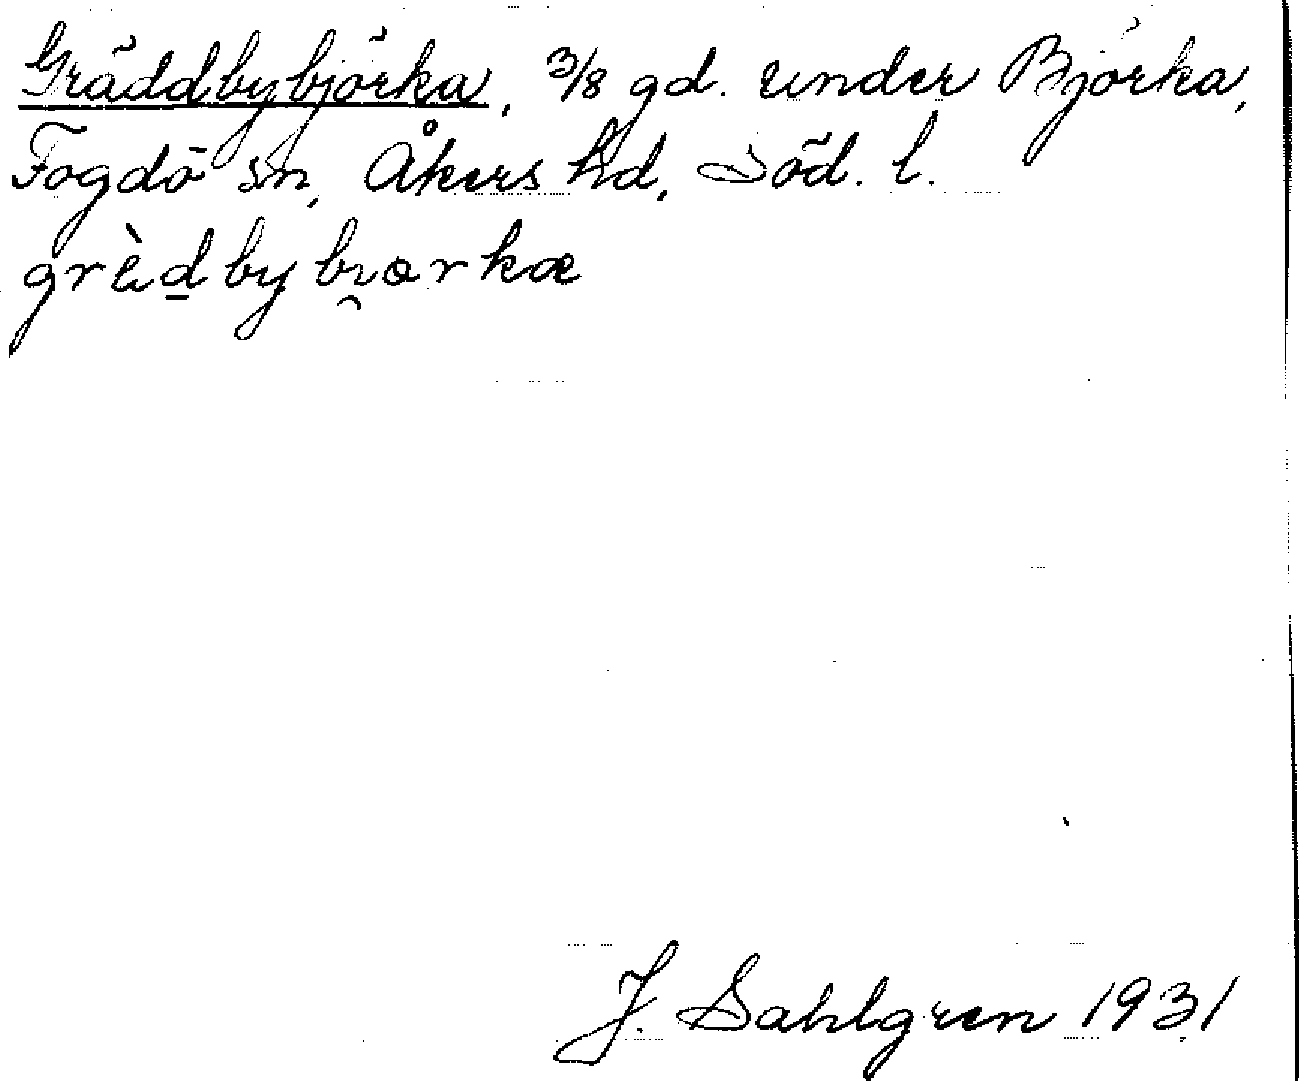 Gräddbybjörka, 3/8 gd. under Björka,
Fogdö sn, Åkers hd, Söd. l.
grèd̲by bi̯ɵrkæ
J. Sahlgren 1931